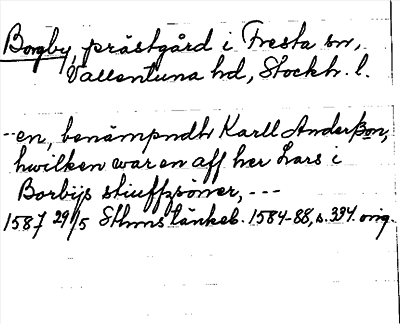 Borgby, prästgård i Fresta sn,
Vallentuna hd, Stockh. l.
--en, benämpndh Karll Anderßon,
hwilken war en aff her Lars i
Borbijs stiuffzsöner, ---
1587 29/5 Sthms tänkeb. 1584-88, s. 334. orig.